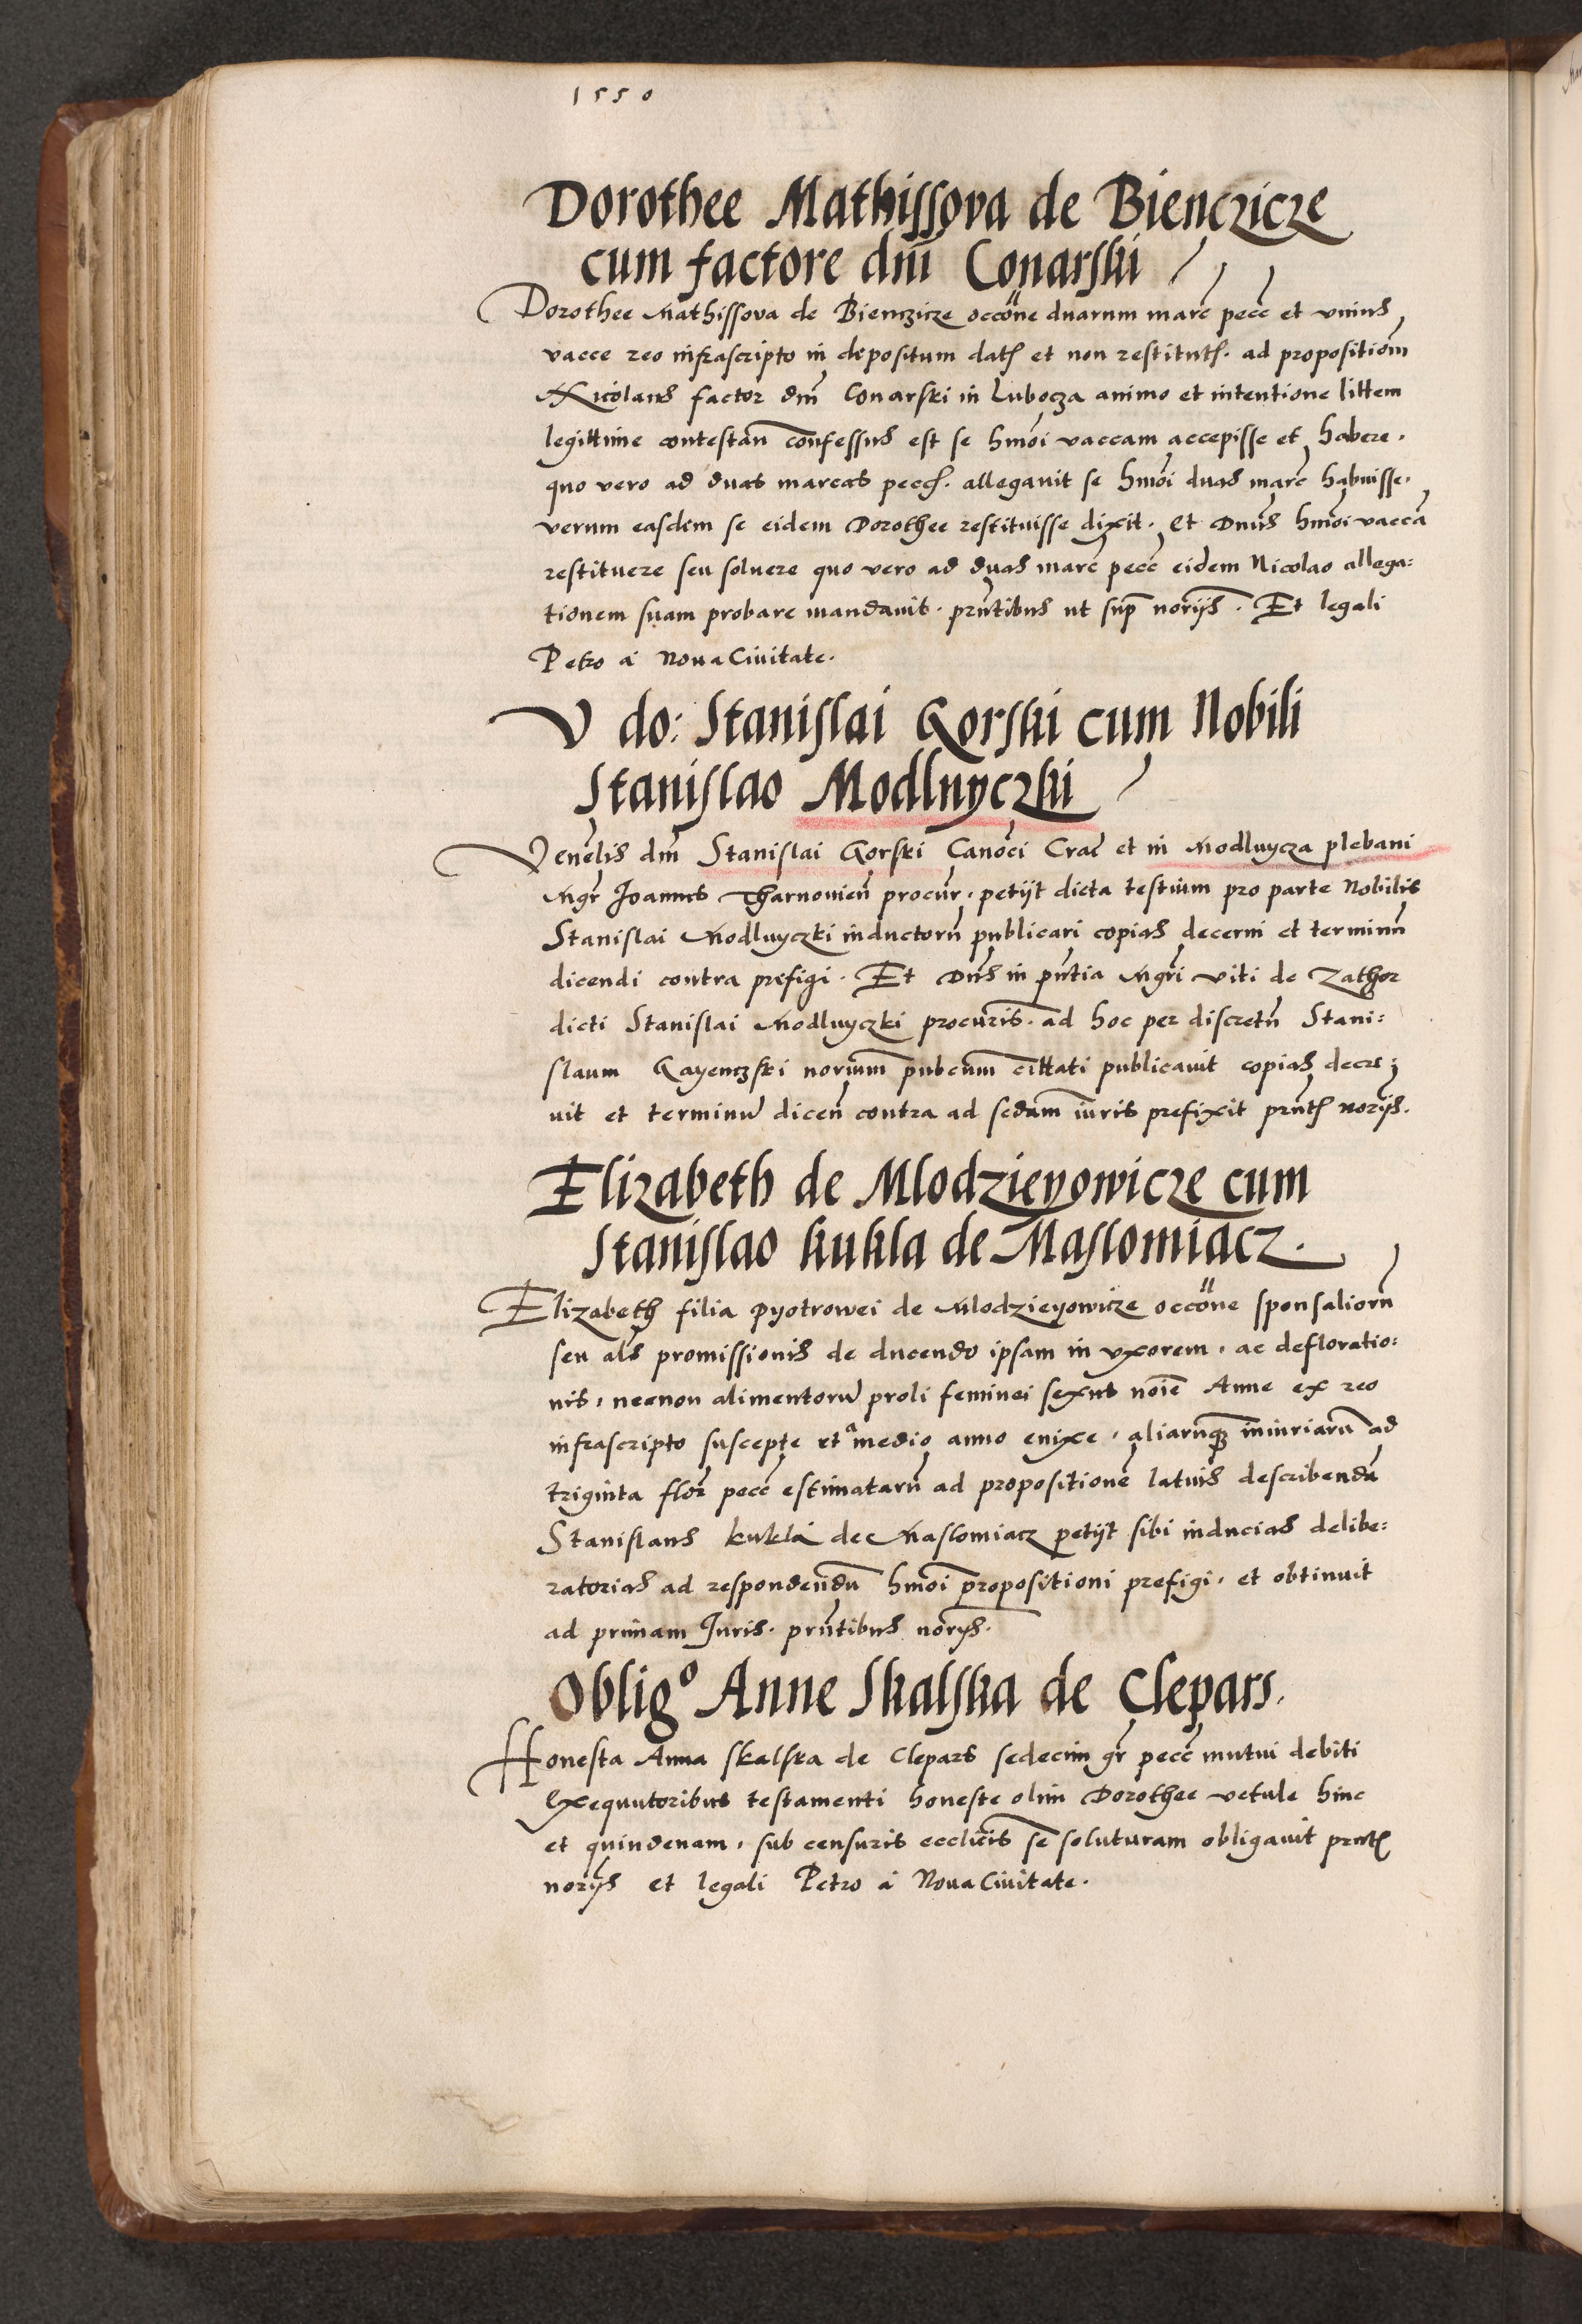 1550
Dorothee Mathissova de Bienczicze
cum factore dnī Conarski
Dorothee Mathissova de Bienczicze occōne duarum marc pecc et vnius
vacce reo infrascripto in depositum dat et non restitut. ad propositiom
Nicolaus factor dnī Conarski in Lubocza animo et intentione littem
legittime contestan confessus est se hmōi vaccam accepisse et habere.
quo vero ad duas marcas pecc. allegauit se hmōi duas marc habuisse.
verum easdem se eidem Dorothee restituisse dixit. Et Dnus hmōi vaccā
restituere seu soluere quo vero ad duas marc pecc eidem Nicolao allega:
tionem suam probare mandauit. prntibus ut sup noriis. Et legali
Petro a Noua Ciuitate.
V do: Stanislai Gorski cum Nobili
Stanislao Modlnyczki
Venēlis dnī Stanislai Gorski Canoci Crac et in Modlnycza plebani
Mgr Joannes Tharnouien procur. petijt dicta testium pro parte Nobilis
Stanislai Modlnyczki inductorū publicari copias decerni et terminū
dicendi contra prefigi. Et Dns in pntia Mgri Viti de Zathor
dicti Stanislai Modlnyczki procuris. ad hoc per discretū Stani:
slaum Gayenczski norium pubcum cittati publicauit copias decre:
uit et terminū dicen contra ad sedam iuris prefixit prnt norijs.
Elizabeth de Mlodzieyowicze cum
Stanislao kukla de Maslomiacz.
Elizabeth filia Pyotrowei de Mlodzieyowicze occōne sponsaliorū
seu als promissionis de ducendo ipsam in vxorem, ac defloratio:
nis, necnon alimentorū proli feminei sexus noīe Anne ex reo
infrascripto suscepte et a medio anno enixe, aliarūq3 iniuriarū ad
triginta flor pecc estimatarū ad propositionē latius describendā
Stanislaus kukla de Maslomiacz petijt sibi inducias delibe:
ratorias ad respondendū hmōi propositioni prefigi, et obtinuit
ad primam Juris. prntibus norys.
Obligo Anne Skalska de Clepars.
Honesta Anna Skalska de Clepars sedecim gr pecc mutui debiti
Exequutoribus testamenti honeste olim Dorothee vetule hinc
et quindenam, sub censuris ecclicis se soluturam obligauit prnt
norijs et legali Petro a Noua Ciuitate.